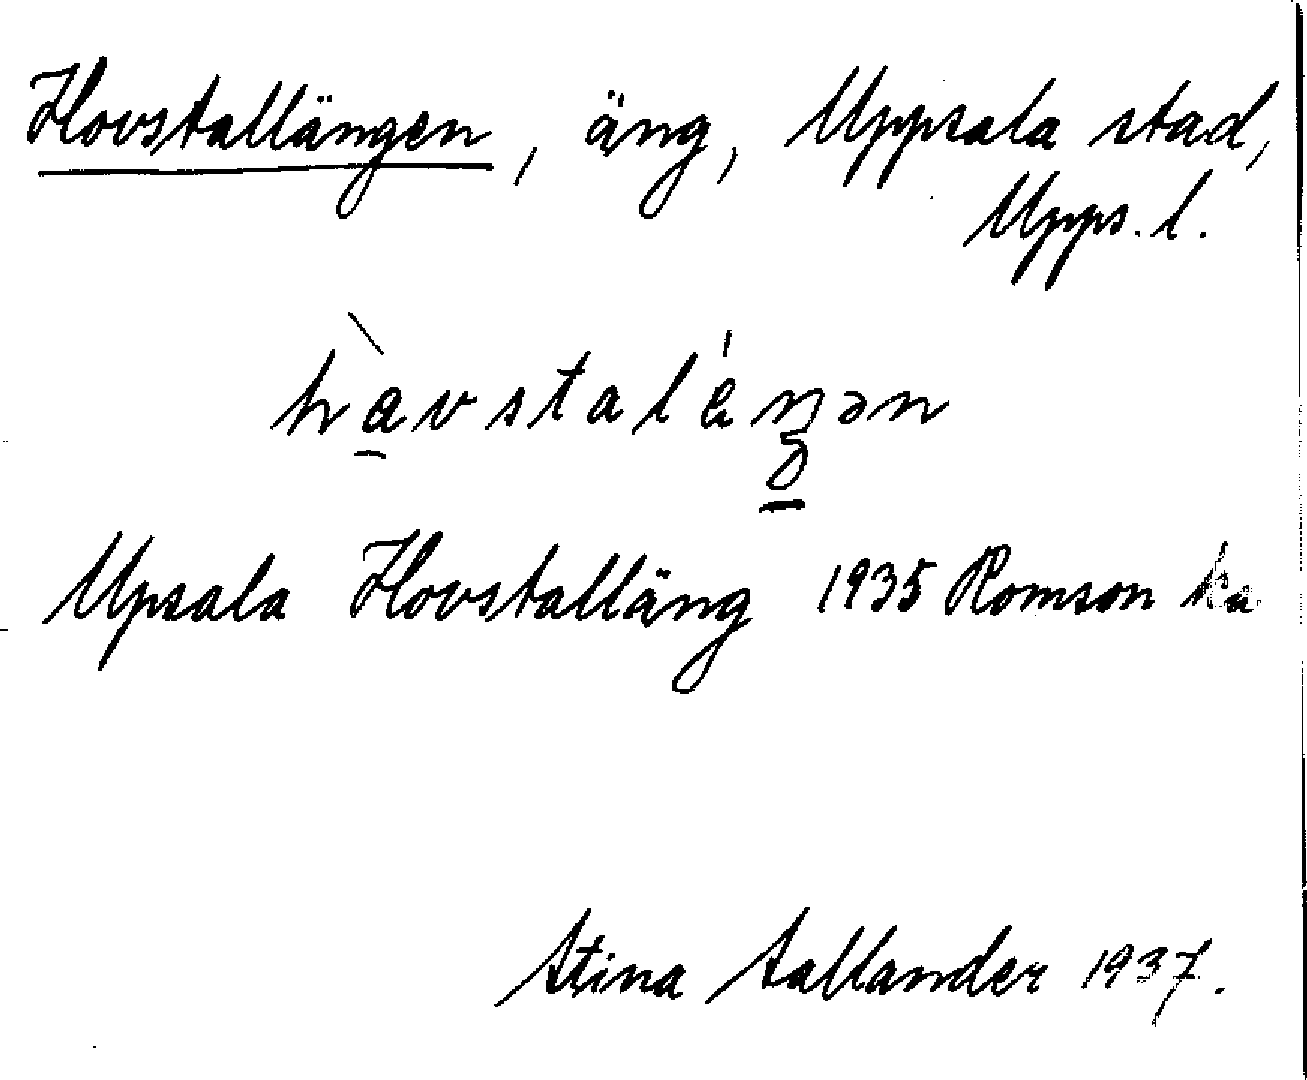 Hovstallängen, äng, Uppsala stad,
Upps. l.
hàvstaléŋən
Upsala Hovstalläng 1935 Romson ka
Stina Sallander 1937.